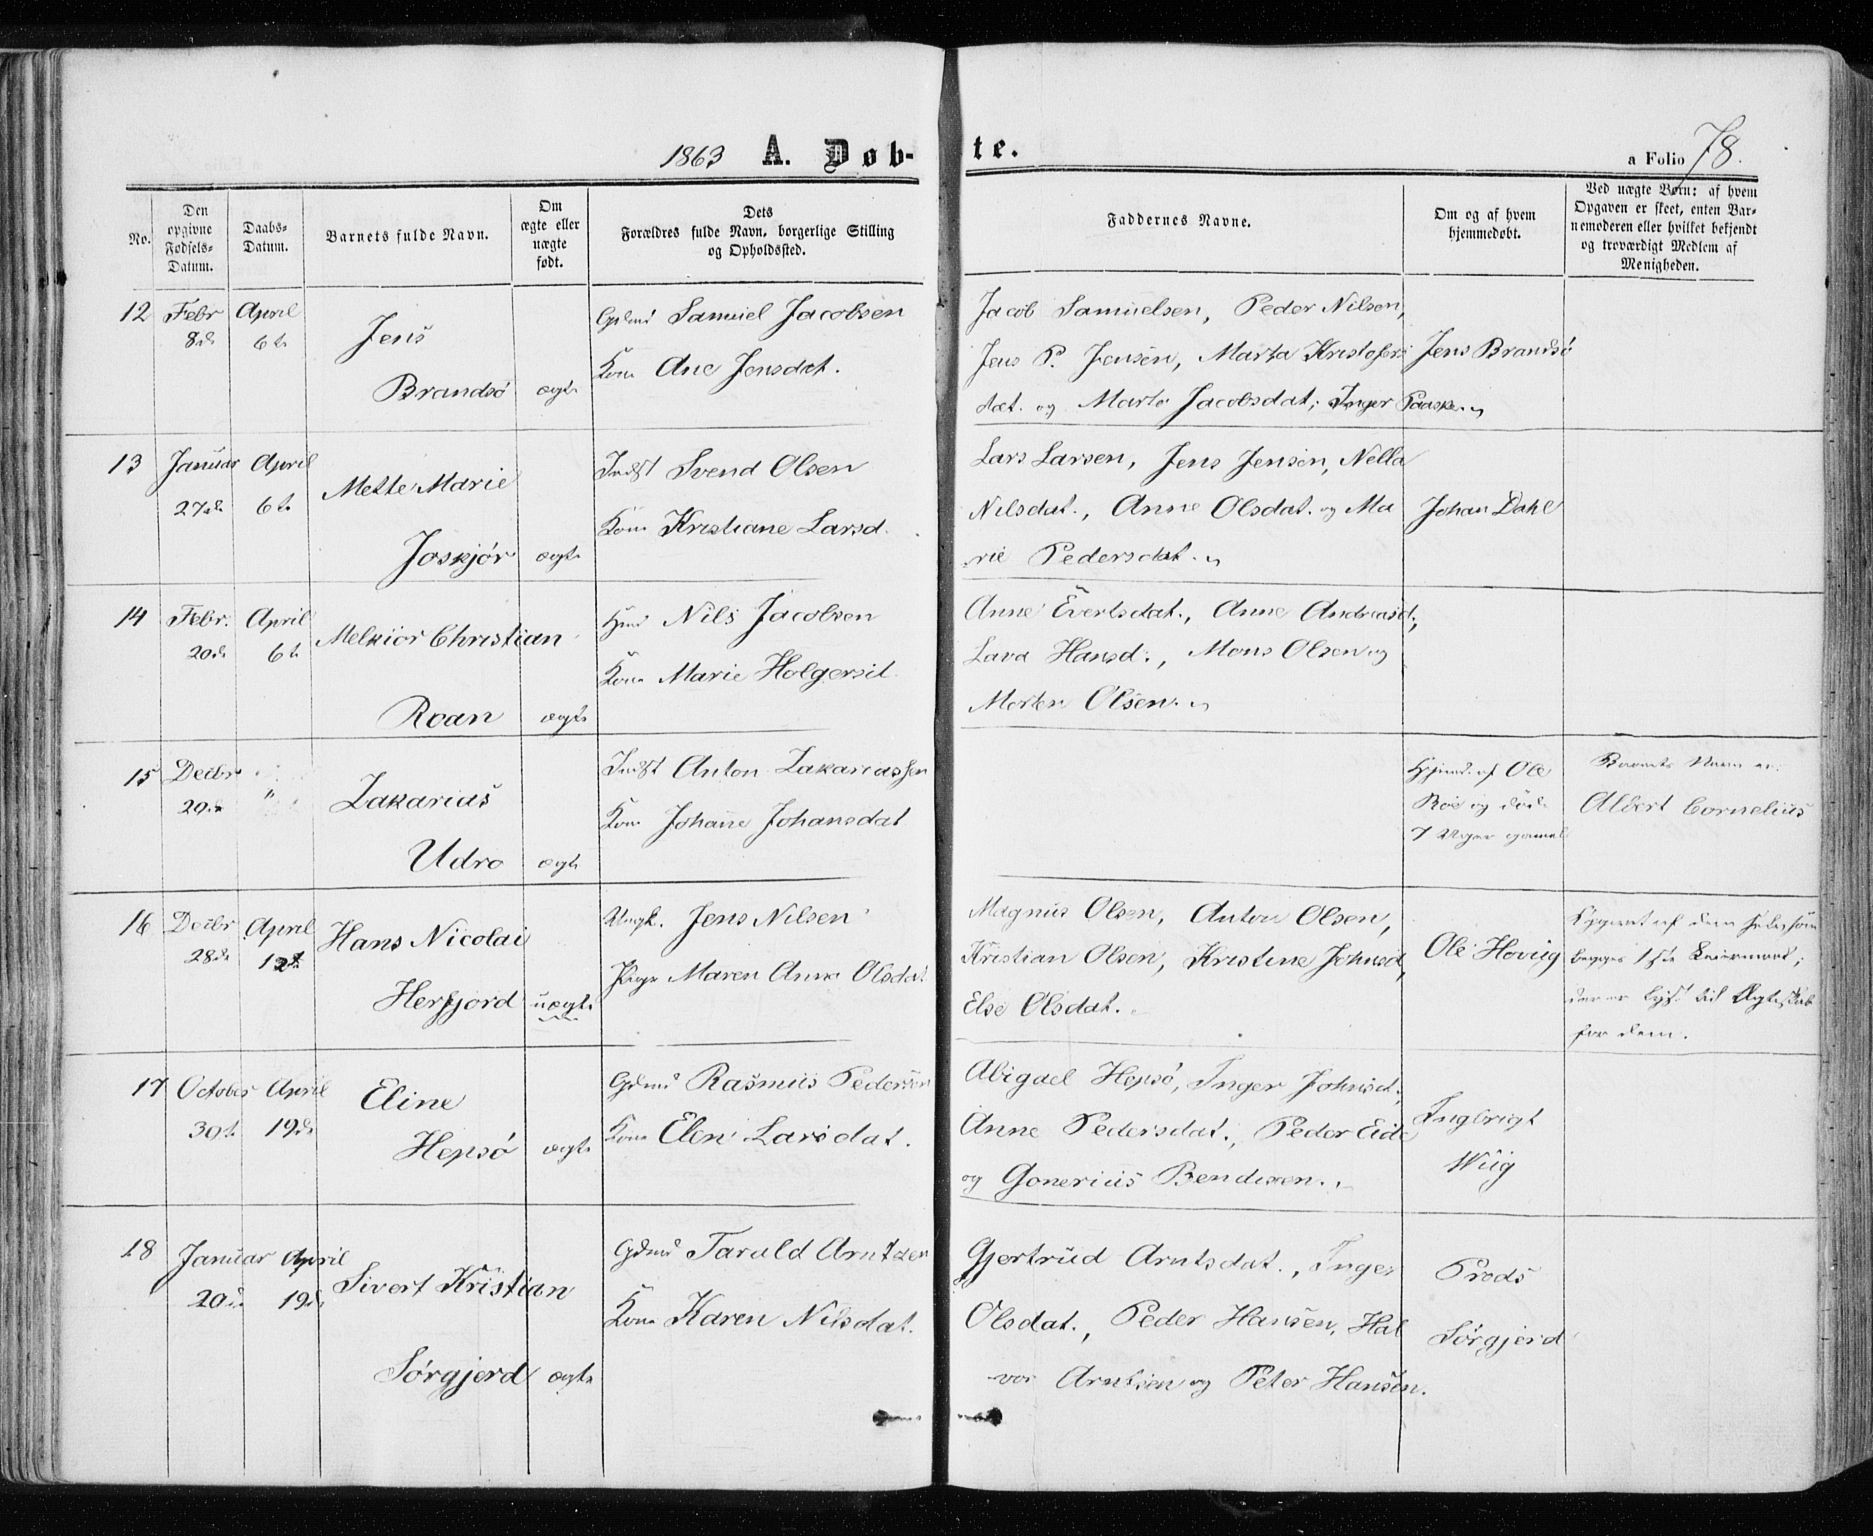 1863 A. Døb-
te.
a Folio 78.
No.
Den opgivne Fødsels-Datum.
Daabs-Datum.
Barnets fulde Navn.
Om ægte eller uægte født.
Dets Forældres fulde Navn, borgerlige Stilling og Opholdssted.
Faddernes Navne.
Om og af hvem hjemmedøbt.
Ved uægte Børn: af hvem Opgaven er skeet, enten Barnemoderen eller hvilket bekjendt og troværdigt Medlem af Menigheden.
12 Febr 8de April 6te
Jens
Brandsø ægte
Gdmd Samuel Jacobsen
Kone Ane Jensdat.
Jacob Samuelsen, Peder Nilsen,
Jens P. Jensen, Marta Kristofers
dat. og Marto Jacobsdat; Inger Paaske.
Jens Brandsø
13 Januar 27de April 6te
Mette Marie
Joskjør ægte
Indst Svend Olsen
Kone Kristiane Larsd.
Lars Larsen, Jens Jensen, Nella
Nilsdat., Anne Olsdat. og Ma
rie Pedersdat.
Johan Dahl
14 Febr. 20de April 6te
Melkior Christian
Roan ægte
Nils Jacobsen
Kone Marie Holgersd.
Anne Evertsdat., Anne Andreasd.,
Lava Hansd., Mons Olsen og
Morten Olsen.
15 Decbr 29de "
Zakarias
Udro ægte
Indst Anton Zakariassen
Kone Johane Johansdat
Hjemd. af Ole
Roe og døde
7 Uger gammel
Barnets Navn er:
Albert Cornelius
16 Decbr 28de April 12te
Hans Nicolai
Herfjord uægte
Ungk. Jens Nilsen
Pige Maren Anna Olsdat
Magnus Olsen, Anton Olsen,
Kristian Olsen, Kristine Johnsd,
Else Olsdat.
Ole Hovug
Opgivet af dem selv som
begges 1ste Leiermaal;
der er lyst til Ægteskab
for dem.
17 October 30te April 19de
Eline
Hepsø ægte
Gdmd Rasmus Pedersen
Kone Elen Larsdat.
Abigael Hepsø, Inger Johnsd.,
Anne Pedersdat., Peder Eide
og Gonerius Bendixen.
Ingbrigt
Wiig
18 Januar 20de April 19de
Sivert Kristian
Sørgjerd ægte
Gdmd Tarald Arntzen
Kone Karen Nilsdat.
Gjertrud Arntsdat., Inger
Olsdat., Peder Hansen, Hal
vor Arntsen og Peter Hansen.
Preds
Sørgjerd